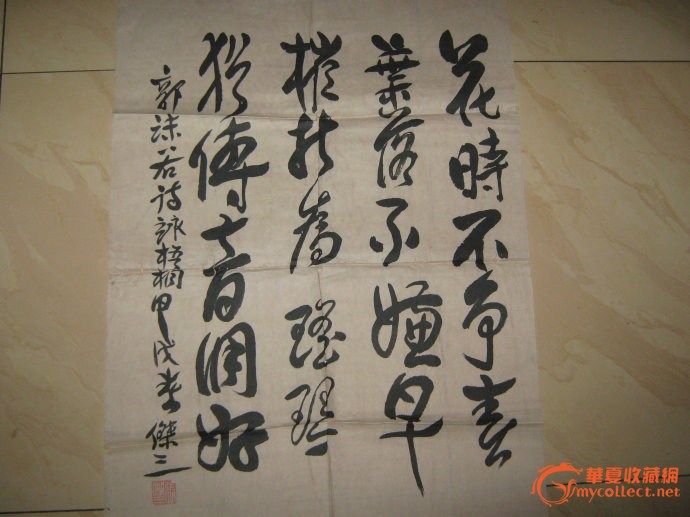 花時不争春
葉落不嫌早
摧折為瑤琴
猶傳音調好
郭沫若诗詠梧桐甲戌春傑三
華夏收藏網
mycollect.net